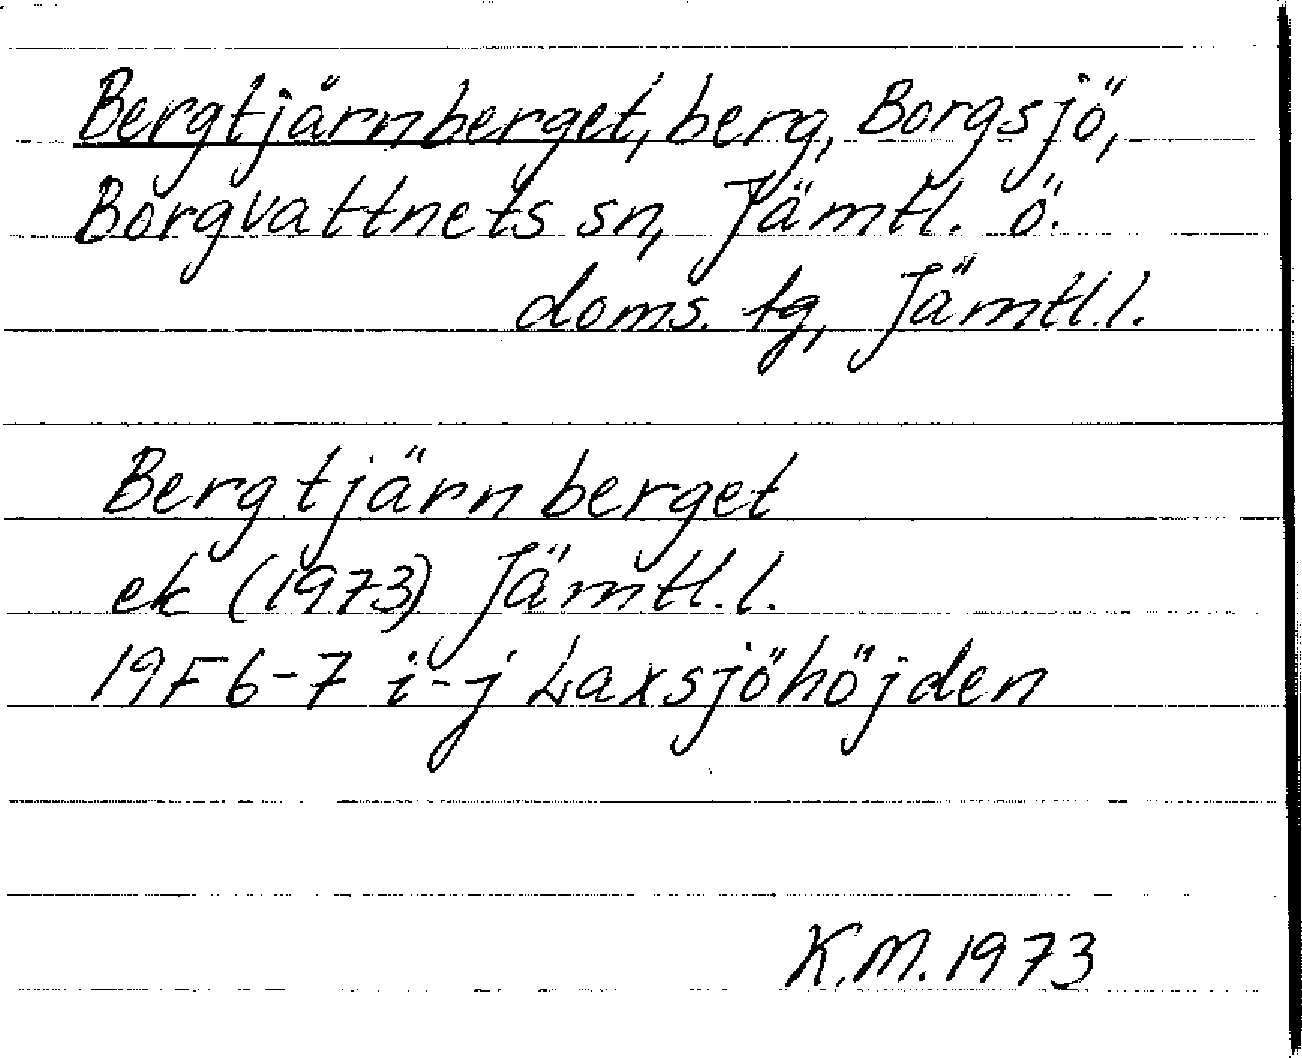 Bergtjärnberget, berg, Borgsjö,
Borgvattnets sn, Jämtl. ö.
doms. tg, Jämtl.l.
Bergtjärnberget
ek (1973) Jämtl.l.
19F 6-7 i-j Laxsjöhöjden
K.M. 1973